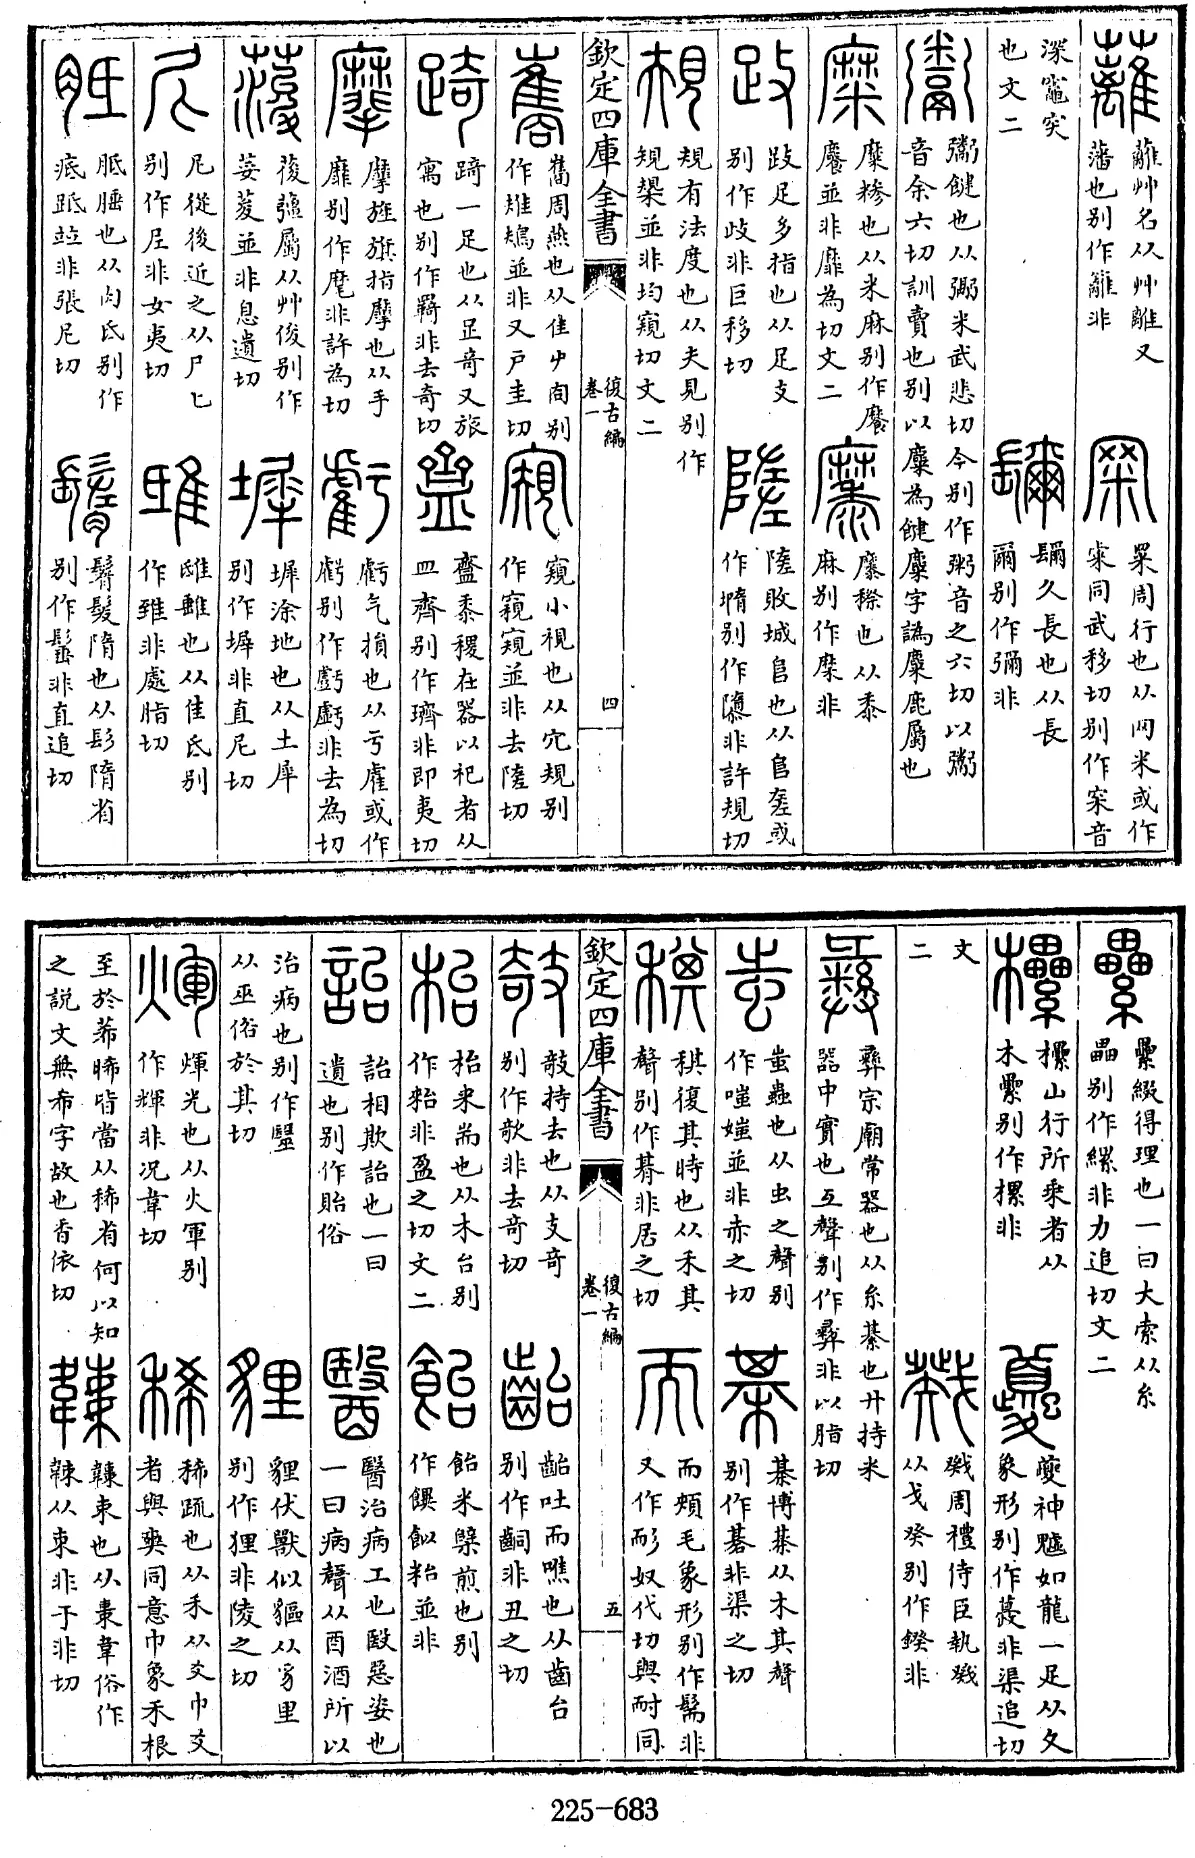 蘺
蘺艸名从艸離又
藩也别作籬非
罙
罙周行也从网米或作
罙同武移切别作冞音
深竈突
也文二
镾
镾久長也从長
爾别作彌非
鬻
鬻鍵也从䰜米武悲切今别作粥音之六切以鬻
音余六切訓賣也别以麋為饘麋字譌麋鹿屬也
糜
糜糝也从米麻别作䊳
䊳並非靡為切文二
穈
穈穄也从黍
麻别作䅇非
跂
跂足多指也从足支
别作歧非巨移切
陸
隓敗城𨸏也从𨸏㚍或
作墮别作隳非許規切
規
規有法度也从夫見别作
規槼並非均窺切文二
欽定四庫全書
復古編
卷一
四
巂
巂周燕也从隹屮冏别
作䳏鴂並非又戶圭切
窺
窺小視也从穴規别
作窺窺並非去隓切
踦
踦一足也从足奇又旅
寓也别作羇非去奇切
齍
齍黍稷在器以祀者从
皿齊别作䶒非即夷切
摩
摩旌旗指摩也从手
靡别作麾非許為切
虧
虧气損也从亏雐或作
虧别作虧虧非去為切
葰
葰薑屬从艸俊别作
荽荾並非息遺切
墀
墀涂地也从土犀
别作墀非直尼切
尼
尼從後近之从尸匕
别作𡰥非女夷切
雎
雎雖也从隹氐别
作雖非處脂切
胝
胝腄也从肉氐别作
疷跖並非張尼切
鬌
鬌髮隋也从髟隋省
别作髽非直追切
纍
纍綴得理也一曰大索从糸
畾别作縲非力追切文二
欙
欙山行所乘者从
木纍别作樏非
夔
夔神魖如龍一足从夊
象形别作䕫非渠追切
文
二
戣
戣周禮侍臣執戣
从戈癸别作鍨非
彝
彝宗廟常器也从糸綦也廾持米
器中實也彑聲别作彛非以脂切
蚩
蚩蟲也从虫之聲别
作嗤媸並非赤之切
棊
棊博棊从木其聲
别作碁非渠之切
稘
稘復其時也从禾其
聲别作朞非居之切
而
而頰毛象形别作髵非
又作耏奴代切與耐同
欽定四庫全書
復古編
卷一
五
攲
攲持去也从支奇
别作欹非去奇切
齝
齝吐而噍也从齒台
别作齠非丑之切
枱
枱耒耑也从木台别
作耛非盈之切文二
飴
飴米糱煎也别
作饌飴粭並非
詒
詒相欺詒也一曰
遺也别作貽俗
醫
醫治病工也殹惡姿也
一曰病聲从酉酒所以
治病也别作毉
从巫俗於其切
貍
貍伏獸似貙从豸里
别作狸非陵之切
煇
煇光也从火軍别
作輝非况韋切
稀
稀疏也从禾从爻巾爻
者與爽同意巾象禾根
至於莃晞皆當从稀省何以知
之說文無希字故也香依切
韢
韢束也从㯻韋俗作
韢从束非于非切
225-683